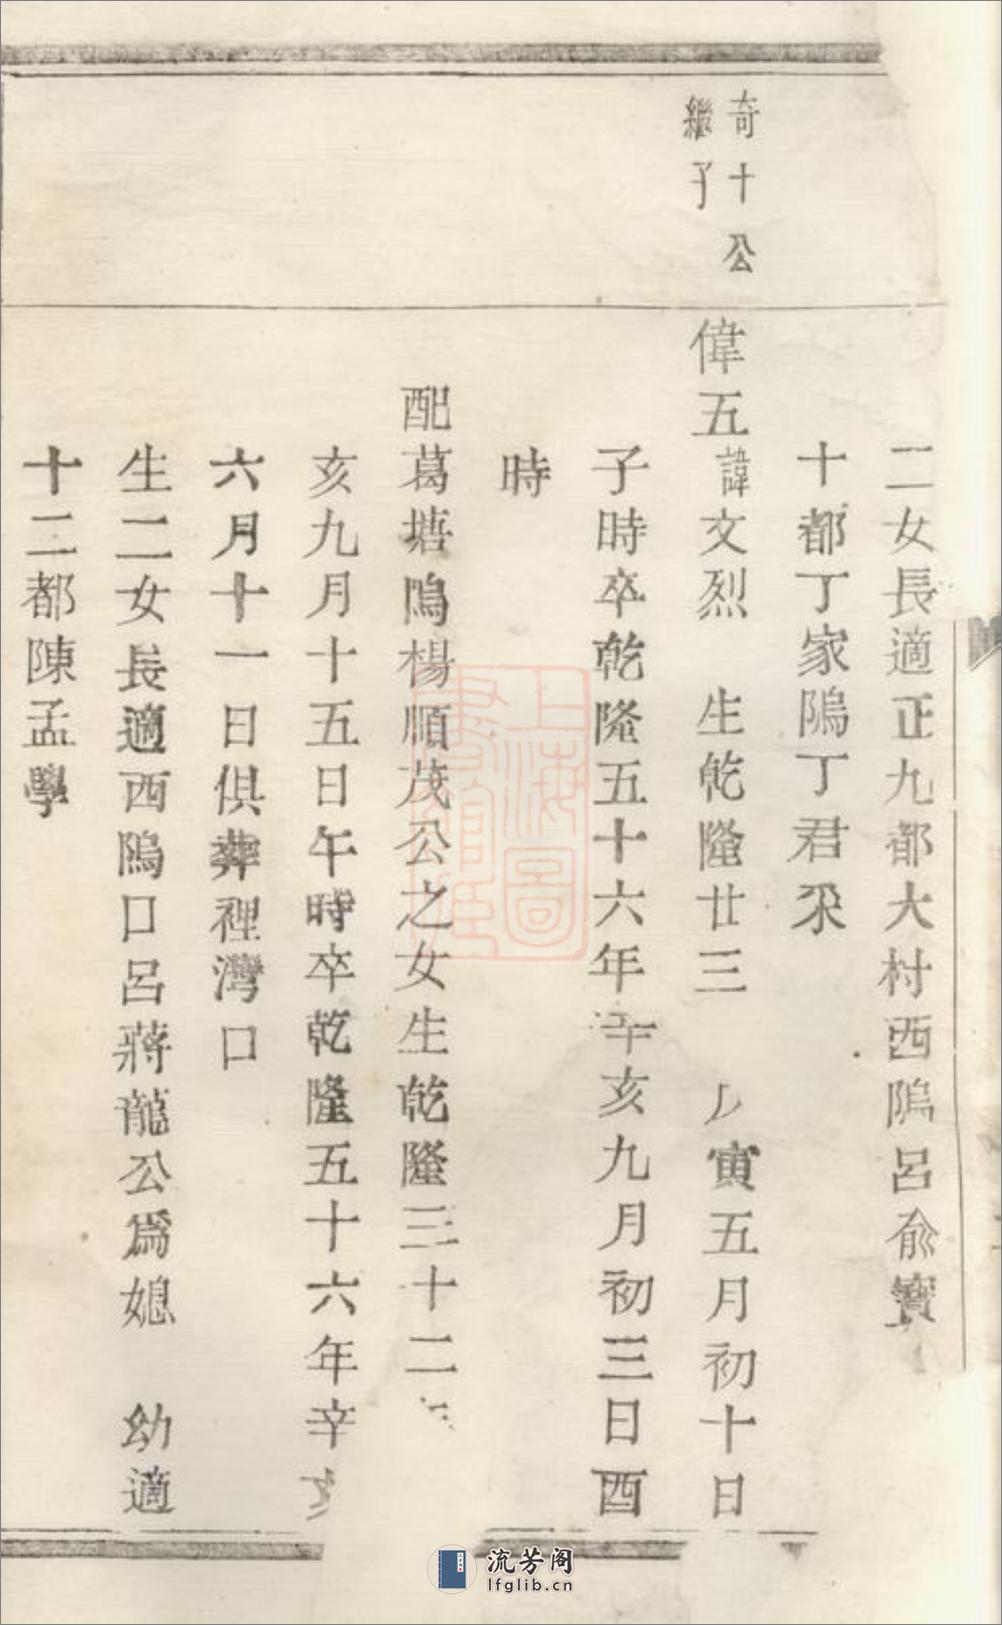 二女長適正九都大村西隝呂俞寶
十都丁家隝丁君采
奇十公
繼子
偉五諱文烈 生乾隆廿三 寅五月初十日
子時卒乾隆五十六年辛亥九月初三日酉
時
配葛塘隝楊順茂公之女生乾隆三十二
亥九月十五日午時卒乾隆五十六年辛亥
六月十一日俱葬裡灣口
生二女長適西隝口呂蔣龍公為媳 幼適
十二都陳孟學
上海圖書館藏
流芳阁
lfglib.cn